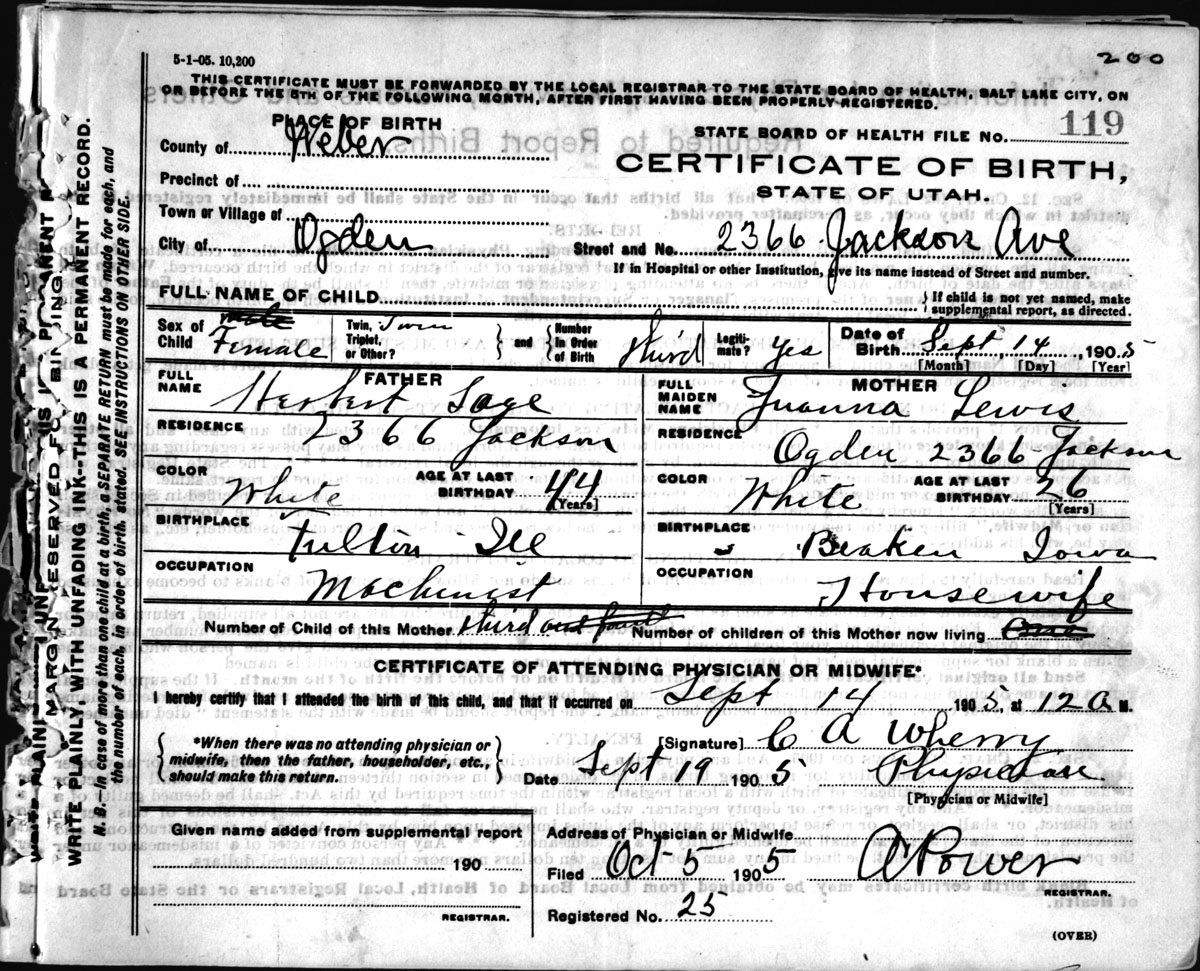 5-1-05. 10,200
200
THIS CERTIFICATE MUST BE FORWARDED BY THE LOCAL REGISTRAR TO THE STATE BOARD OF HEALTH, SALT LAKE CITY, ON
OR BEFORE THE 5TH OF THE FOLLOWING MONTH, AFTER FIRST HAVING BEEN PROPERLY REGISTERED.
PLACE OF BIRTH
STATE BOARD OF HEALTH FILE No. 119
County of Weber
CERTIFICATE OF BIRTH,
STATE OF UTAH.
Precinct of
Town or Village of
City of Ogden
Street and No. 2366 Jackson Ave
If in Hospital or other Institution, give its name instead of Street and number.
FULL NAME OF CHILD
} If child is not yet named, make
supplemental report, as directed.
Sex of Child male Female
Twin, Triplet, or Other? Twin
} and {
Number In Order of Birth third
Legiti-mate? yes
Date of Birth Sept 14, 1905
[Month] [Day] [Year]
FATHER
FULL NAME Herbert Sage
RESIDENCE 2366 Jackson
COLOR White
AGE AT LAST BIRTHDAY 44
[Years]
BIRTHPLACE Fulton Ill
OCCUPATION Machinist
MOTHER
FULL MAIDEN NAME Juanna Lewis
RESIDENCE Ogden 2366 Jackson
COLOR White
AGE AT LAST BIRTHDAY 26
[Years]
BIRTHPLACE Iowa
OCCUPATION Housewife
Number of Child of this Mother third and fourth Number of children of this Mother now living
CERTIFICATE OF ATTENDING PHYSICIAN OR MIDWIFE*
I hereby certify that I attended the birth of this child, and that it occurred on Sept 14 1905, at 12 A M.
{ *When there was no attending physician or
midwife, then the father, householder, etc.,
should make this return. }
[Signature] C A Wherry
Date Sept 19 1905 Physician
[Physician or Midwife]
Given name added from supplemental report
190
REGISTRAR.
Address of Physician or Midwife
Filed Oct 5 1905 A Power
REGISTRAR.
Registered No. 25
(OVER)
MARGIN RESERVED FOR BINDING
WRITE PLAINLY, WITH UNFADING INK--THIS IS A PERMANENT RECORD.
N. B.—In case of more than one child at a birth, a SEPARATE RETURN must be made for each, and
the number of each, in order of birth, stated. SEE INSTRUCTIONS ON OTHER SIDE.